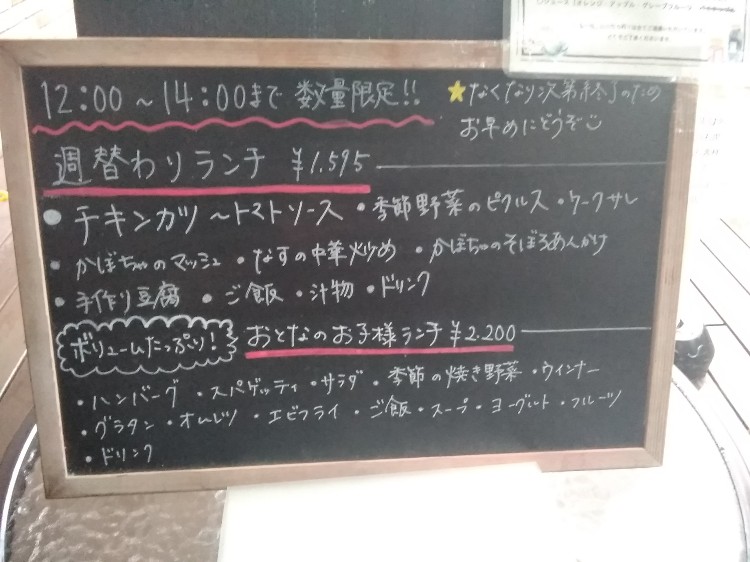 12:00〜14:00まで 数量限定!!
★なくなり次第終了のため
お早めにどうぞ
週替わりランチ ¥1.595
・チキンカツ〜トマトソース ・季節野菜のピクルス ・ケークサレ
・かぼちゃのマッシュ ・なすの中華炒め ・かぼちゃのそぼろあんかけ
・手作り豆腐 ・ご飯 ・汁物 ・ドリンク
ボリュームたっぷり!
おとなのお子様ランチ ¥2.200
・ハンバーグ ・スパゲッティ ・サラダ ・季節の焼き野菜 ・ウインナー
・グラタン ・オムレツ ・エビフライ ・ご飯 ・スープ ・ヨーグルト ・フルーツ
・ドリンク